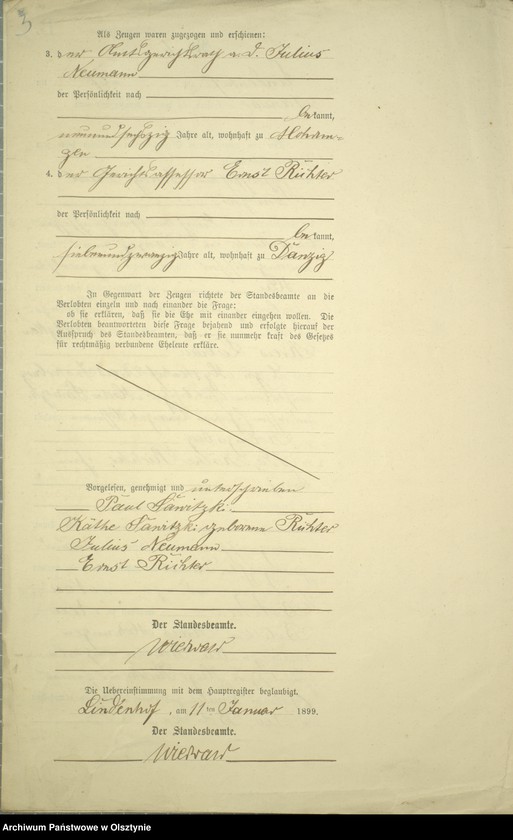 3
Als Zeugen waren zugezogen und erschienen:
3. der Amtsgerichtsrath a. D. Julius
Neumann
der Persönlichkeit nach
bekannt,
neunundsechzig Jahre alt, wohnhaft zu
4. der Gerichtsassessor Ernst Richter
der Persönlichkeit nach
bekannt,
siebenundzwanzig Jahre alt, wohnhaft zu Danzig
In Gegenwart der Zeugen richtete der Standesbeamte an die
Verlobten einzeln und nach einander die Frage:
ob sie erklären, daß sie die Ehe mit einander eingehen wollen. Die
Verlobten beantworteten diese Frage bejahend und erfolgte hierauf der
Ausspruch des Standesbeamten, daß er sie nunmehr kraft des Gesetzes
für rechtmäßig verbundene Eheleute erkläre.
Vorgelesen, genehmigt und unterschrieben
Paul Sawitzki
Käthe Sawitzki geborene Richter
Julius Neumann
Ernst Richter
Der Standesbeamte.
Die Uebereinstimmung mit dem Hauptregister beglaubigt.
Lindenhof, am 11ten Januar 1899.
Der Standesbeamte.
Archiwum Państwowe w Olsztynie